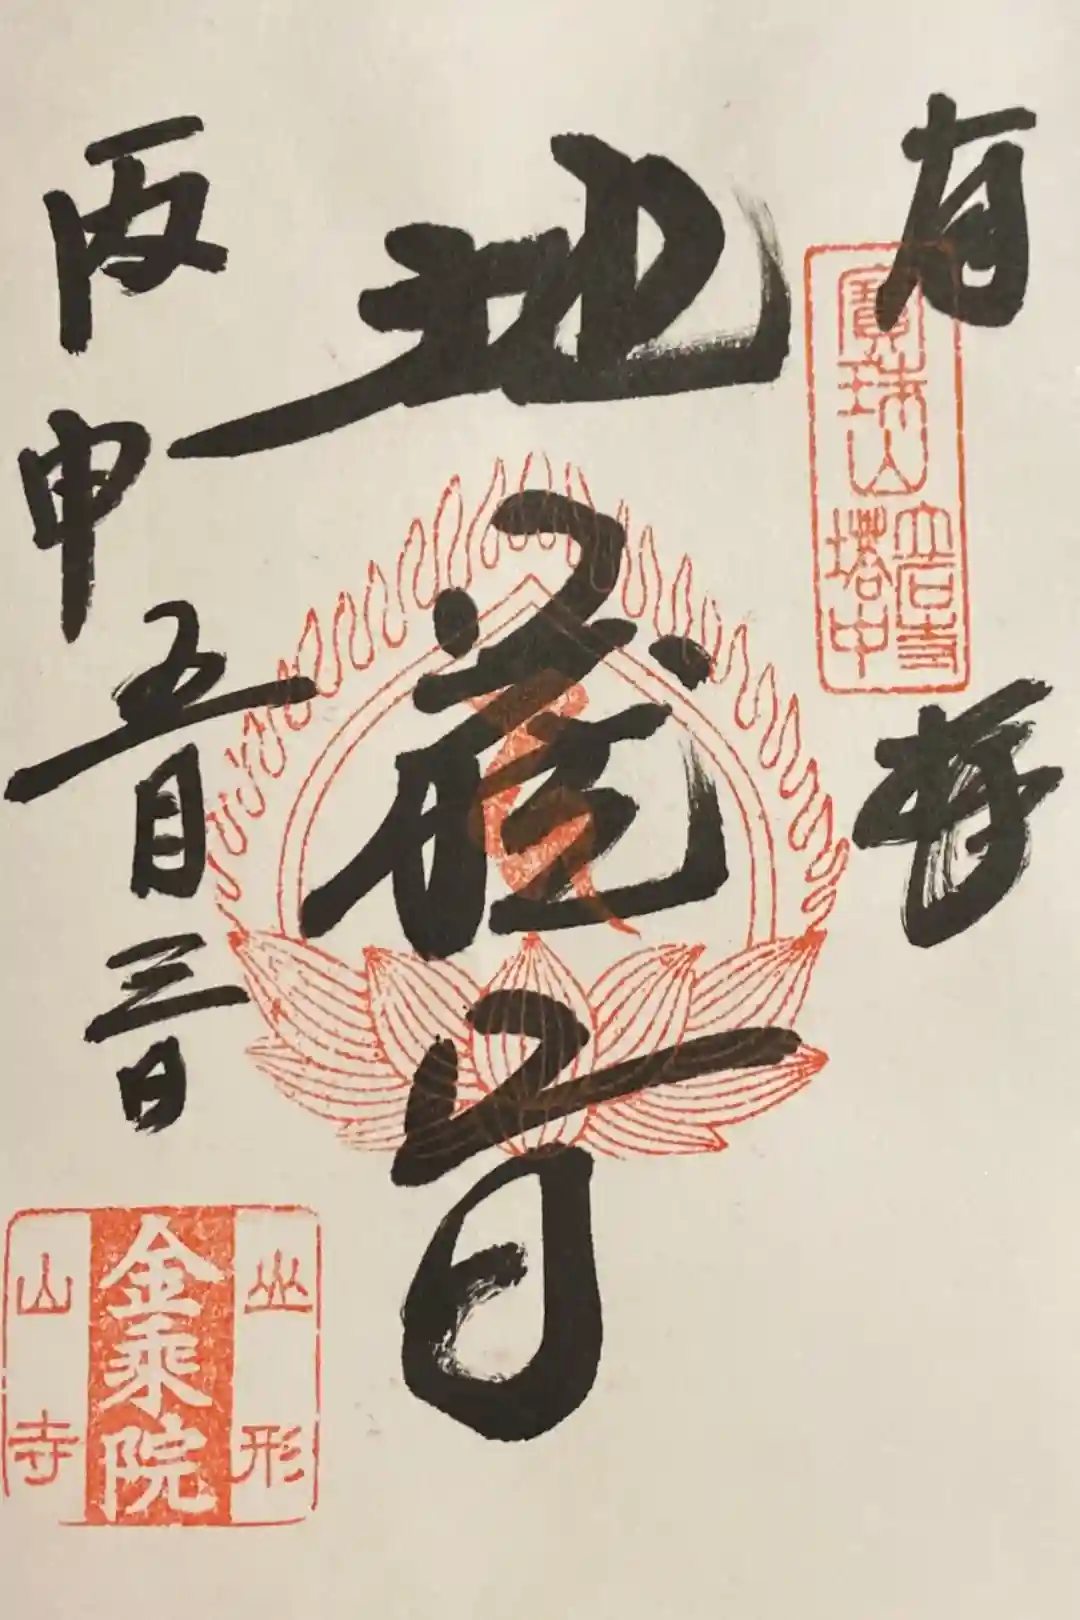 拝
寶珠山
立石寺
塔中
地蔵尊
丙申五月三日
山形
金乗院
山寺